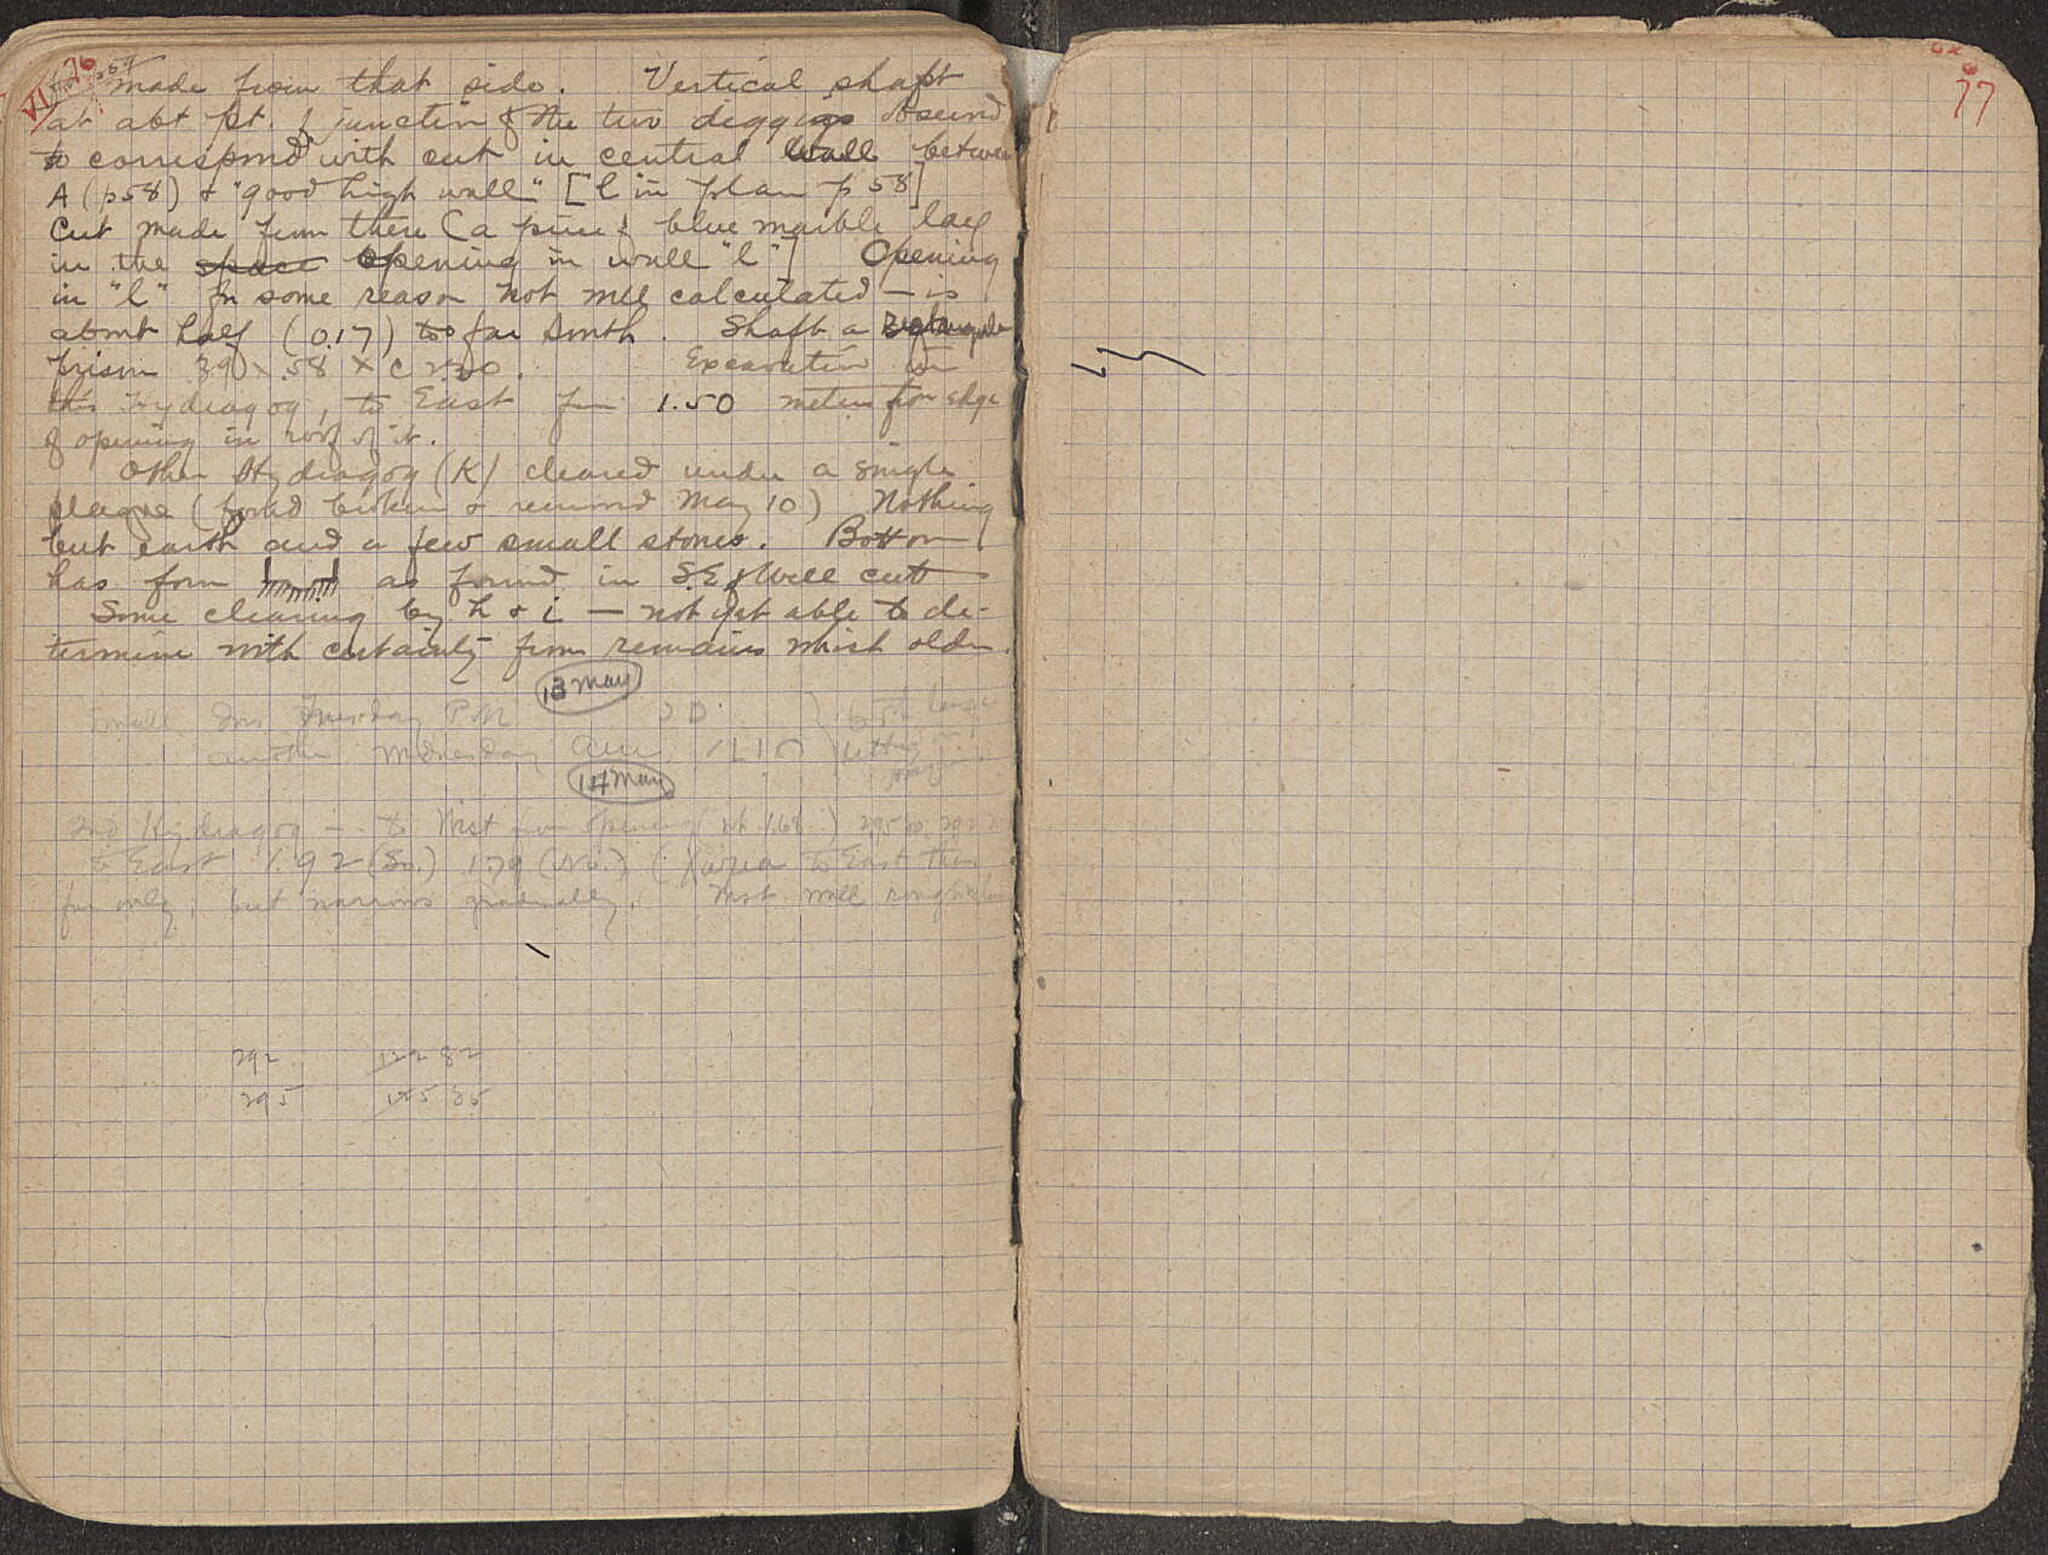 VI 76
made from that side. Vertical shaft
at abt pt. of junction of the two diggings found
to correspond with cut in central wall between
A (p58) & "good high wall" [l in plan p 58]
Cut made from there (a piece of blue marble lay
in the space opening in wall "l") Opening
in "l" for some reason not well calculated — is
about half (0.17) too far South. Shaft a rectangular
prism .39 x .58 x c
Excavation in
this Hydragog, to East for 1.50 meters from edge
of opening in roof of it.
Other Hydragog (K) cleared under a single
plaque (found broken & removed May 10) Nothing
but earth and a few small stones. Bottom
has form as found in S.E. & Well cutt
Some clearing by h & i — not yet able to de-
termine with certainty from remains which older.
13 May
Small Tuesday P.M.
another Wednesday am
both large
14 May
2nd Hydragog — to West from opening ( 1.68 ) 295
to East 1.92 (So.) 1.79 (No.) ( to East thus
far only, but narrows gradually. West wall
292 122 82
295 125 85
77